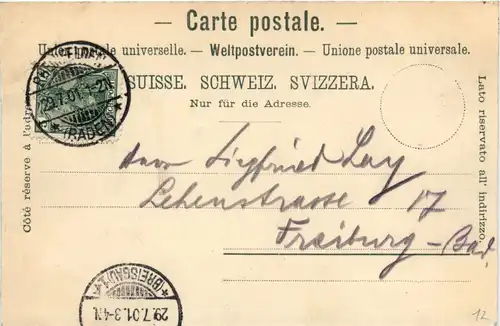 Carte postale.
Union postale universelle. — Weltpostverein. — Unione postale universale.
SUISSE. SCHWEIZ. SVIZZERA.
Nur für die Adresse.
Côté réservé à l'adresse
Lato riservato all' indirizzo.
RHEINFELDEN
29.7.01.
(BADEN)
Herrn Siegfried Lay
Lehenstrasse 17
Freiburg - Bad.
(BREISGAU) 1
29.7.01.3-4N.
12